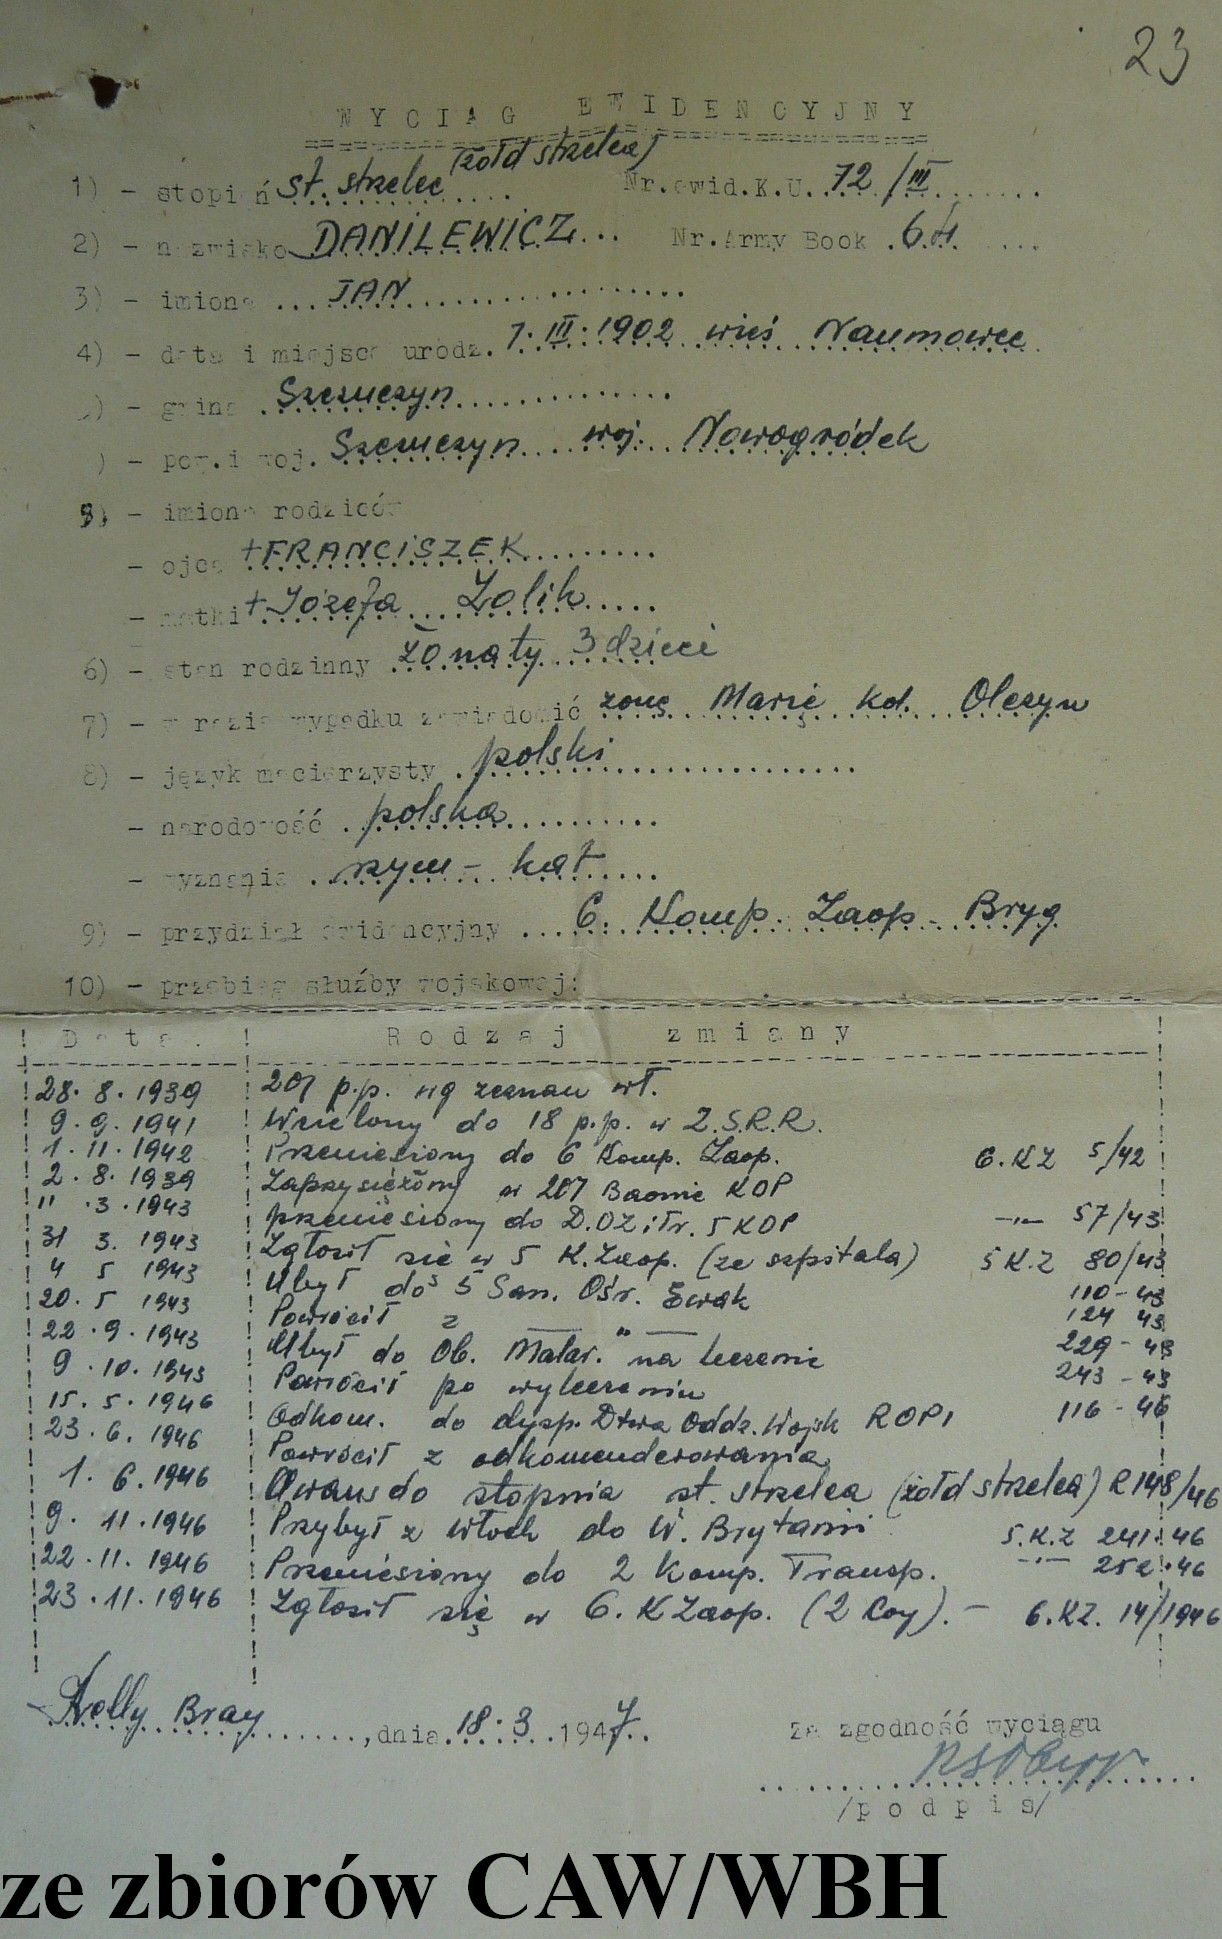 23
WYCIĄG EWIDENCYJNY
(żołd strzelca)
1) - stopień st. strzelec Nr.ewid.K.U. 72/III
2) - nazwisko DANILEWICZ... Nr.Army Book .64
3) - imiona ... JAN
4) - data i miejsce urodz. 7.III.1902 wieś Naumowce
) - gmina . Szczuczyn
) - pow.i woj. Szczuczyn woj. Nowogródek
5) - imiona rodziców
- ojca +FRANCISZEK
- matki + Józefa Zolik
6) - stan rodzinny żonaty 3 dzieci
7) - w razie wypadku zawiadomić żonę Marię kol. Olczyn
8) - język macierzysty . polski
- narodowość . polska
- wyznanie . rzym - kat
9) - przydział ewidencyjny ... 6. Komp. Zaop. Bryg
10) - przebieg służby wojskowej:
Data. Rodzaj zmiany
28. 8. 1939 207 p.p. wg zeznan wł.
9. 9. 1941 Wcielony do 18 p.p. w Z.S.R.R.
1. 11. 1942 Przeniesiony do 6 Komp. Zaop. 6.KZ 5/42
2. 8. 1939 Zaprzysiężony w 207 Baonie KOP
11 .3. 1943 przeniesiony do D.OZ i Tr. 5 KOP -"- 57/43
31 3. 1943 Zgłosił się w 5 K.Zaop. (ze szpitala) 5 K.Z 80/43
4 5 1943 Ubył do 5 San. Ośr. Ewak 110-43
20. 5 1943 Powrócił z -"- 124 43
22 .9. 1943 Ubył do Ob. Malar. na leczenie 229-43
9 .10. 1943 Powrócił po wyleczeniu 243-43
15. 5. 1946 Odkom. do dysp. Dtwa Oddz. Wojsk ROPI 116-46
23. 6. 1946 Powrócił z odkomenderowania
1. 6. 1946 Awans do stopnia st. strzelca (żołd strzelca) R 148/46
9. 11. 1946 Przybył z Włoch do W. Brytanii 5.K.Z 241.46
22. 11. 1946 Przeniesiony do 2 Komp. Transp. -"- 252.46
23. 11. 1946 Zgłosił się w 6. K Zaop. (2 Coy). - 6.KZ. 14/1946
Kelly Bray, dnia 18.3 1947..
za zgodność wyciągu
/podpis/
ze zbiorów CAW/WBH